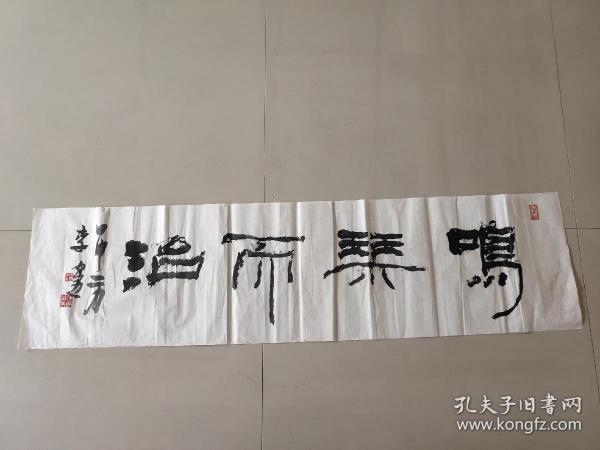 鳴琴而治
孔夫子旧書网
www.kongfz.com